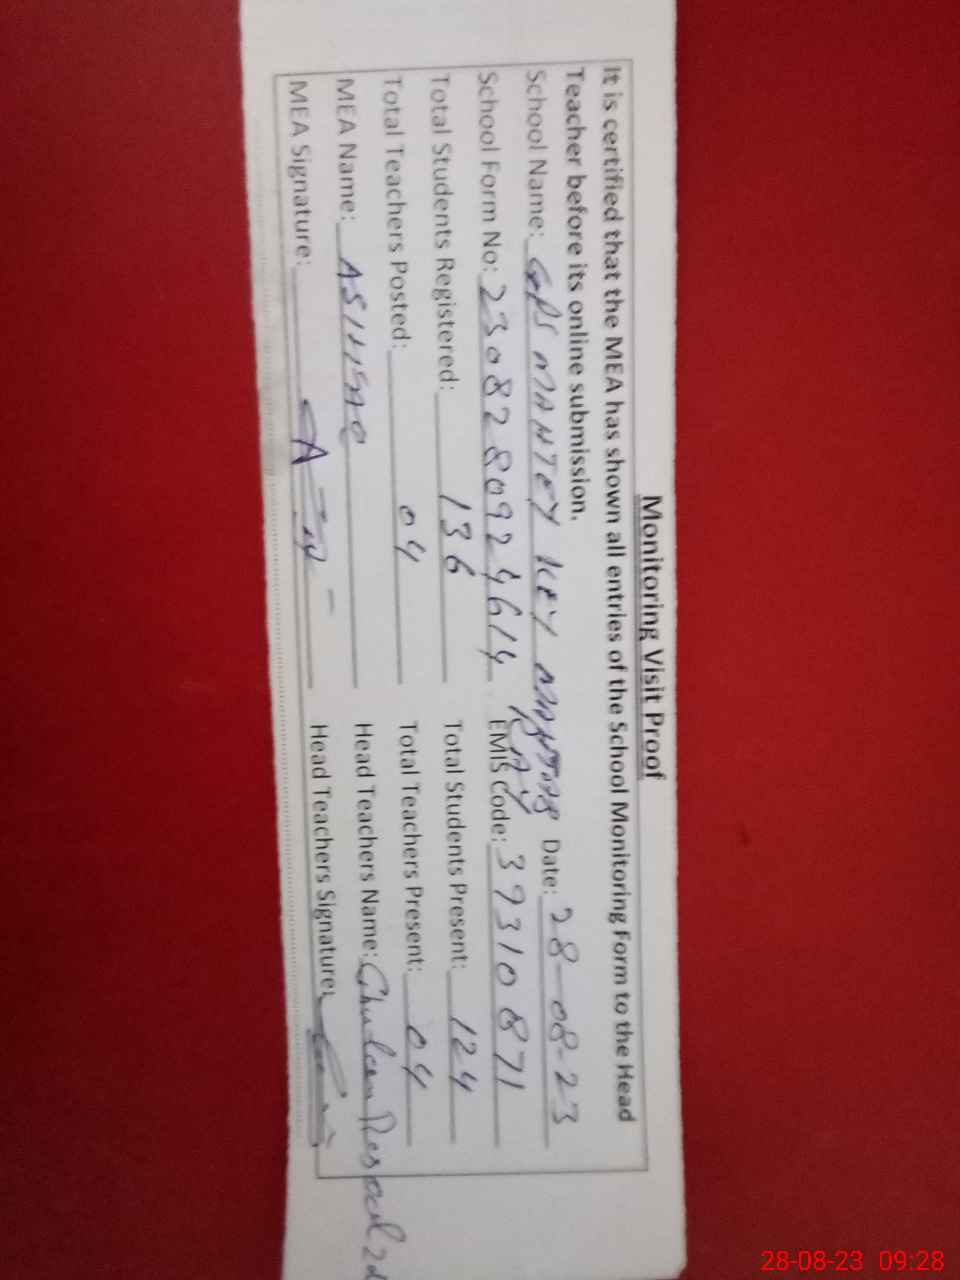 Monitoring Visit Proof
It is certified that the MEA has shown all entries of the School Monitoring Form to the Head
Teacher before its online submission.
School Name: GPS MANTEY KEY Date: 28-08-23
RAY
School Form No: 2308280924614 EMIS Code: 39310871
Total Students Registered: 136 Total Students Present: 124
Total Teachers Posted: 04 Total Teachers Present: 04
MEA Name: Head Teachers Name: Ghulam Rasool
MEA Signature: Head Teachers Signature:
28-08-23 09:28